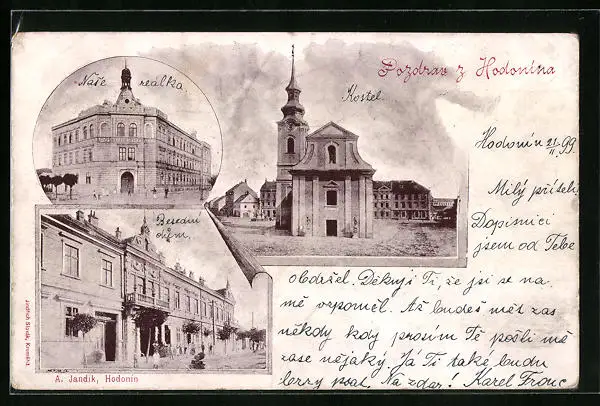 Naše realka
Kostel.
Pozdrav z Hodonína
Besední
dům.
Hodonín 21/II 99
Milý příteli,
Dopisnici
jsem od Tebe
obdržel. Děkuji Ti, že jsi se na
mě vzpomněl. Až budeš mít zas
někdy kdy prosím Tě pošli mě
zase nějaký. Já Ti také budu
psat. Na zdar! Karel
A. Jandik, Hodonín